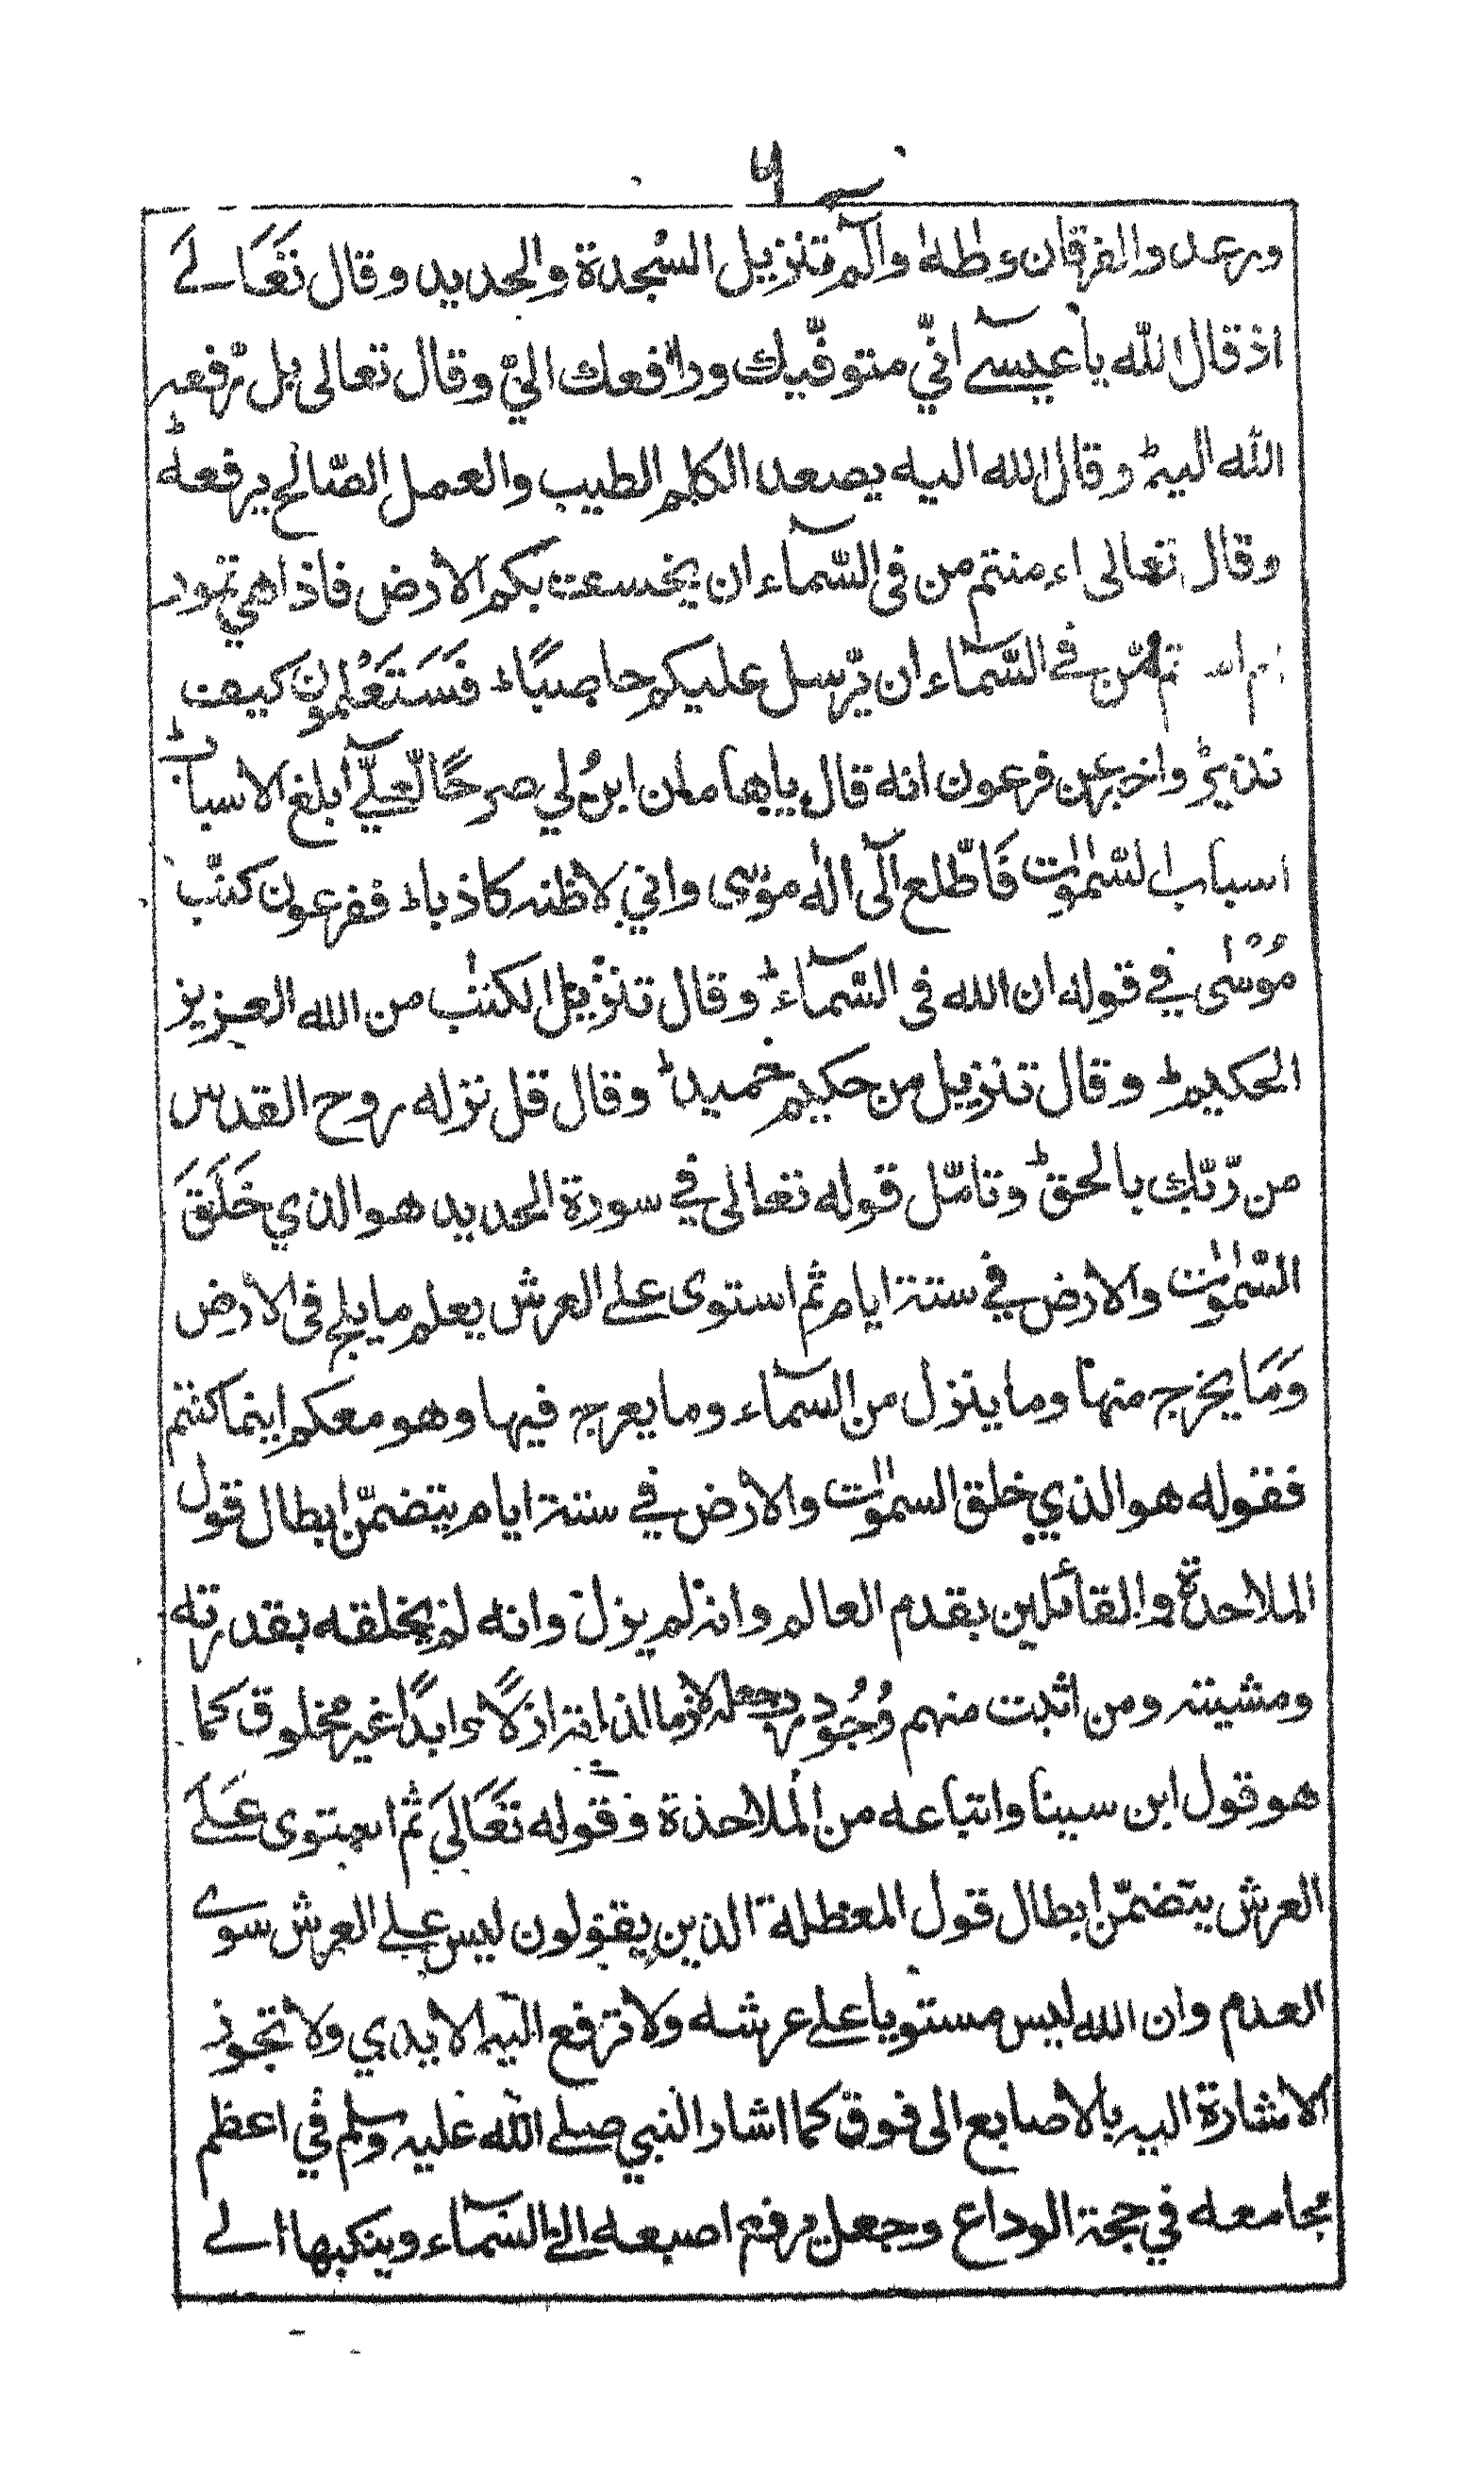 ۶
ورعد والفرقان وطٰهٰ والٓم تنزيل السُّجدة والحديد وقال تَعَالےَ
اذ قال الله يا عيسےٓ انّي متوفّيك ورافعك اليّ وقال تعالى بل رّفعه
الله اليه ط وقال الله اليه يصعد الكلم الطيب والعمل الصّالح يرفعه ط
وقال تعالى اءمنتم من فى السّمآء ان يخسف بكم الارض فاذا هي تمور
ام امنتم مّن في السّمآء ان يّرسل عليكم حاصبًا ط فَسَتَعْلمون كيف
نذير ط واخبر عن فرعون انه قال ياهامان ابنُ لي صرحًا لّعلّےٓ ابلغ الاسباب ط
اسباب السّمٰوٰت فَاَطّلع الٓى الٰه موسى واني لاظنه كاذبا ط ففرعون كذّب
مُوْسٰى في قوله ان الله فى السّمآء ط وقال تنزيل الكتٰب من الله العزيز
الحكيم ط وقال تنزيل من حكيم حميد ط وقال قل نزله روح القدس
من رّبّك بالحق ط وتامّل قوله تعالى في سورة الحديد هو الذي خَلَقَ
السّمٰوٰت والارض في ستة ايام ثم استوى علے العرش يعلم ما يلج فى الارض
وَمَا يخرج منها وما ينزل من السمآء وما يعرج فيها وهو معكم اينما كنتم
فقوله هو الذي خلق السمٰوٰت والارض في ستة ايام يتضمّن ابطال قول
الملاحدة والقائلين بقدم العالم وانه لم يزل وانه لم يخلقه بقدرته
ومشيته ومن اثبت منهم وُجُود رب جعله لازما لذاته ازلًا وابدًا غير مخلوق كما
هو قول ابن سينا واتباعه من الملاحدة وقوله تَعَالَىَ ثم استوى عَلےَ
العرش يتضمّن ابطال قول المعطلة الذين يقولون ليس علے العرش سوے
العدم وان الله ليس مستويا علے عرشه ولا ترفع اليه الايدي ولا تجوز
الاشارة اليه بالاصابع الى فوق كما اشار النبي صلے الله عليه وسلم في اعظم
مجامعه في حجة الوداع وجعل يرفع اصبعه الے السّمآء وينكبها الے